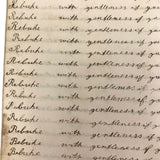 Rebuke with gentleness if y
Rebuke with gentleness of y
Rebuke with gentleness of y
Rebuke with gentleness of y
Rebuke with gentleness of y
Rebuke with gentleness of y
Rebuke with gentleness of
Rebuke with gentleness of
Rebuke with gentleness of
Rebuke with gentleness of
Rebuke with gentleness of
Rebuke with gentleness
Rebuke with gentleness